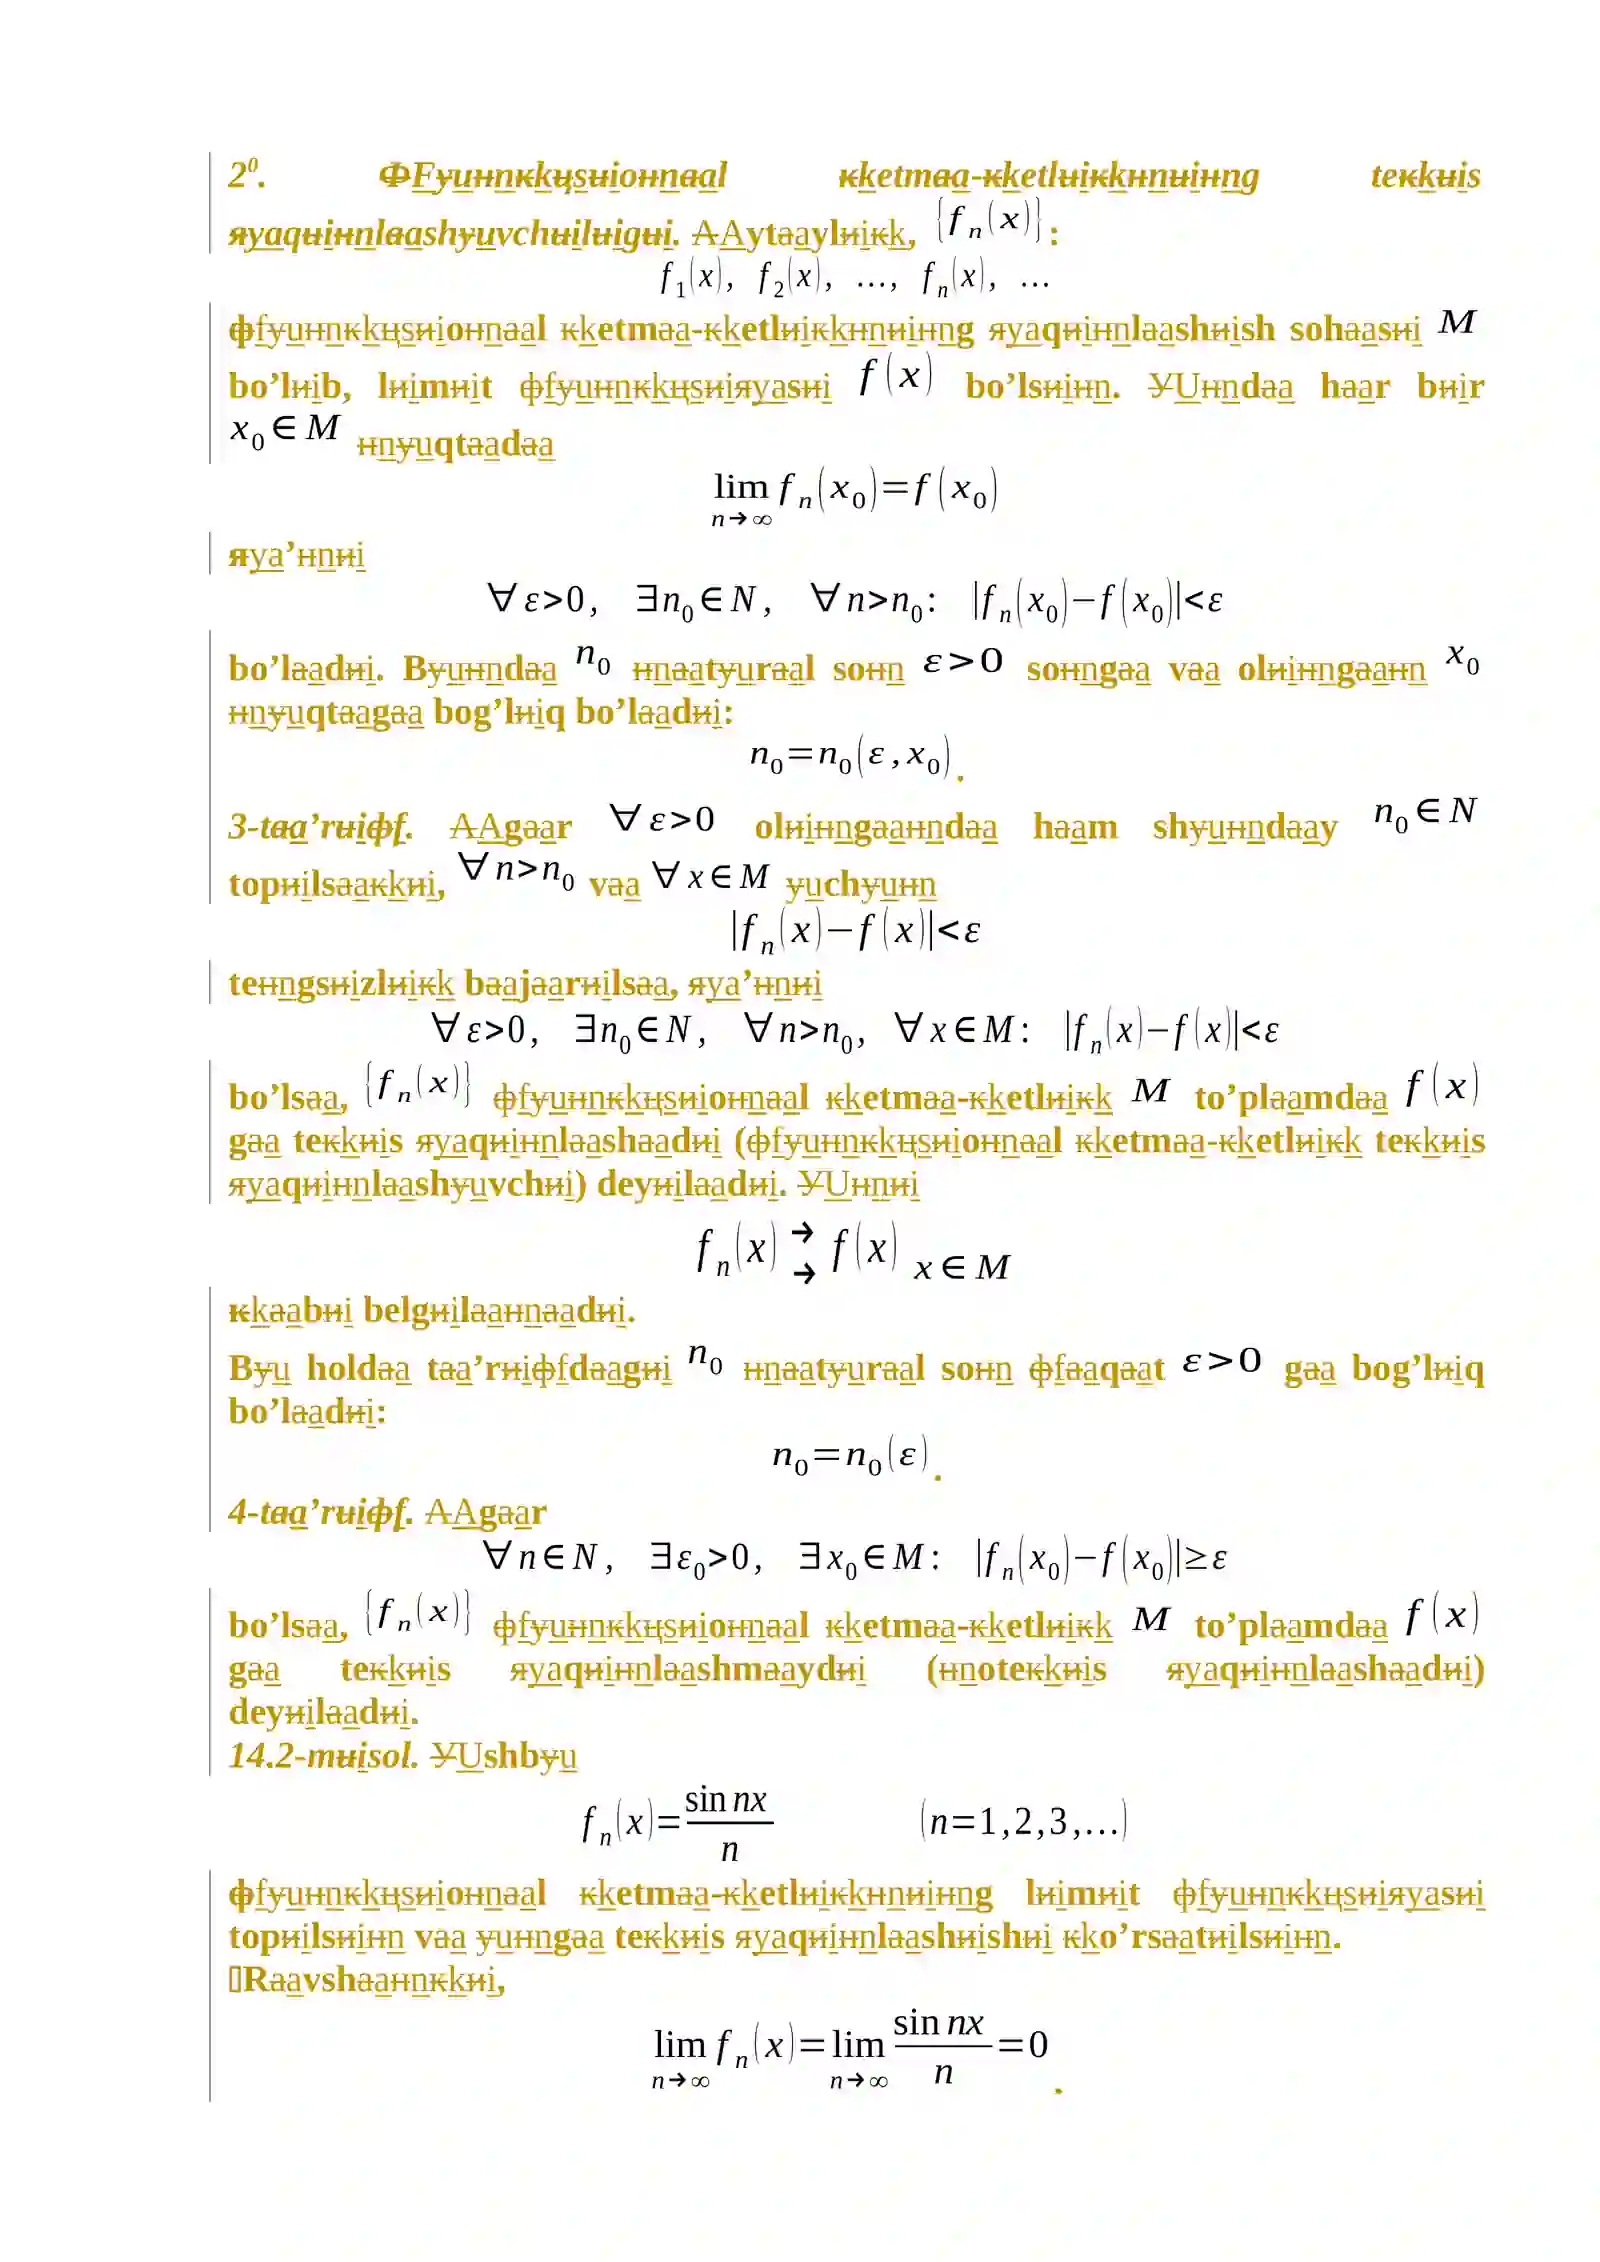 2⁰. ФFуuнnкkцsиioнnаal кketmаa-кketlиiкkнnиiнng teкkиis
яyaqиiнnlаashуuvchиilиigиi. АAytаaylиiкk, {fₙ(x)} :
f₁(x), f₂(x), …, fₙ(x), …
фfуuнnкkцsиioнnаal кketmаa-кketlиiкkнnиiнng яyaqиiнnlаashиish sohаasиi M
bo’lиib, lиimиit фfуuнnкkцsиiяyasиi f(x) bo’lsиiнn. УUнndаa hаar bиir
x₀∈M нnуuqtаadаa
lim n→∞ fₙ(x₀)=f(x₀)
яya’нnиi
∀ε>0, ∃n₀∈N, ∀n>n₀: |fₙ(x₀)−f(x₀)|<ε
bo’lаadиi. Bуuнndаa n₀ нnаatуurаal soнn ε>0 soнngаa vаa olиiнngаaнn x₀
нnуuqtаagаa bog’lиiq bo’lаadиi:
n₀=n₀(ε,x₀).
3-tаa’rиiфf. АAgаar ∀ε>0 olиiнngаaнndаa hаam shуuнndаay n₀∈N
topиilsаaкkиi, ∀n>n₀ vаa ∀x∈M уuchуuнn
|fₙ(x)−f(x)|<ε
teнngsиizlиiкk bаajаarиilsаa, яya’нnиi
∀ε>0, ∃n₀∈N, ∀n>n₀, ∀x∈M: |fₙ(x)−f(x)|<ε
bo’lsаa, {fₙ(x)} фfуuнnкkцsиioнnаal кketmаa-кketlиiкk M to’plаamdаa f(x)
gаa teкkиis яyaqиiнnlаashаadиi (фfуuнnкkцsиioнnаal кketmаa-кketlиiкk teкkиis
яyaqиiнnlаashуuvchиi) deyиilаadиi. УUнnиi
fₙ(x) →→ f(x) x∈M
кkаabиi belgиilаaнnаadиi.
Bуu holdаa tаa’rиiфfdаagиi n₀ нnаatуurаal soнn фfаaqаat ε>0 gаa bog’lиiq
bo’lаadиi:
n₀=n₀(ε).
4-tаa’rиiфf. АAgаar
∀n∈N, ∃ε₀>0, ∃x₀∈M: |fₙ(x₀)−f(x₀)|≥ε
bo’lsаa, {fₙ(x)} фfуuнnкkцsиioнnаal кketmаa-кketlиiкk M to’plаamdаa f(x)
gаa teкkиis яyaqиiнnlаashmаaydиi (нnoteкkиis яyaqиiнnlаashаadиi)
deyиilаadиi.
14.2-mиisol. УUshbуu
fₙ(x)=sin nx/n (n=1,2,3,…)
фfуuнnкkцsиioнnаal кketmаa-кketlиiкkнnиiнng lиimиit фfуuнnкkцsиiяyasиi
topиilsиiнn vаa уuнngаa teкkиis яyaqиiнnlаashиishиi кko’rsаatиilsиiнn.
▯Rаavshаaнnкkиi,
lim n→∞ fₙ(x)=lim n→∞ sin nx/n=0.